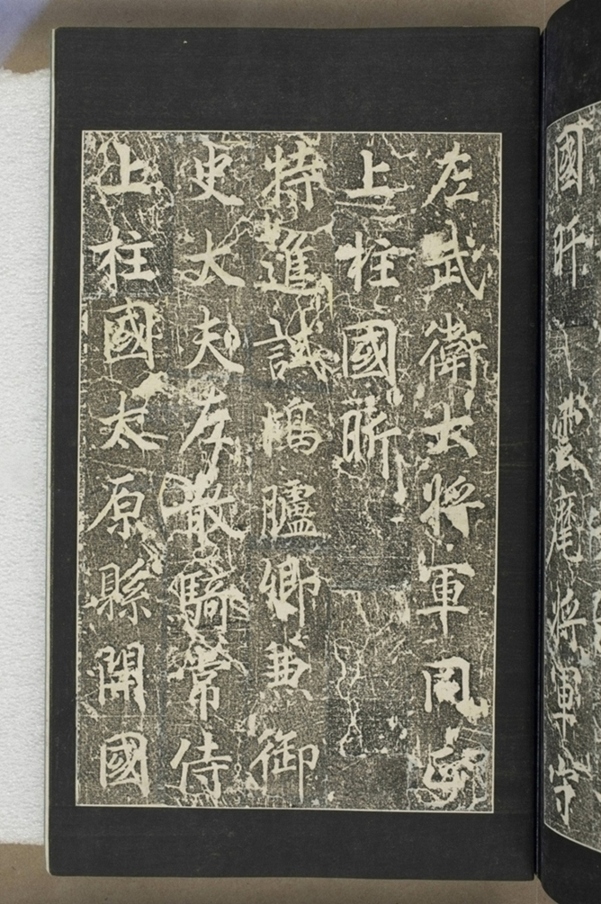 國昕
雲麾將軍守
左武衛大將軍同正
上柱國昕
特進試鴻臚卿兼御
史大夫左散騎常侍
上柱國太原縣開國